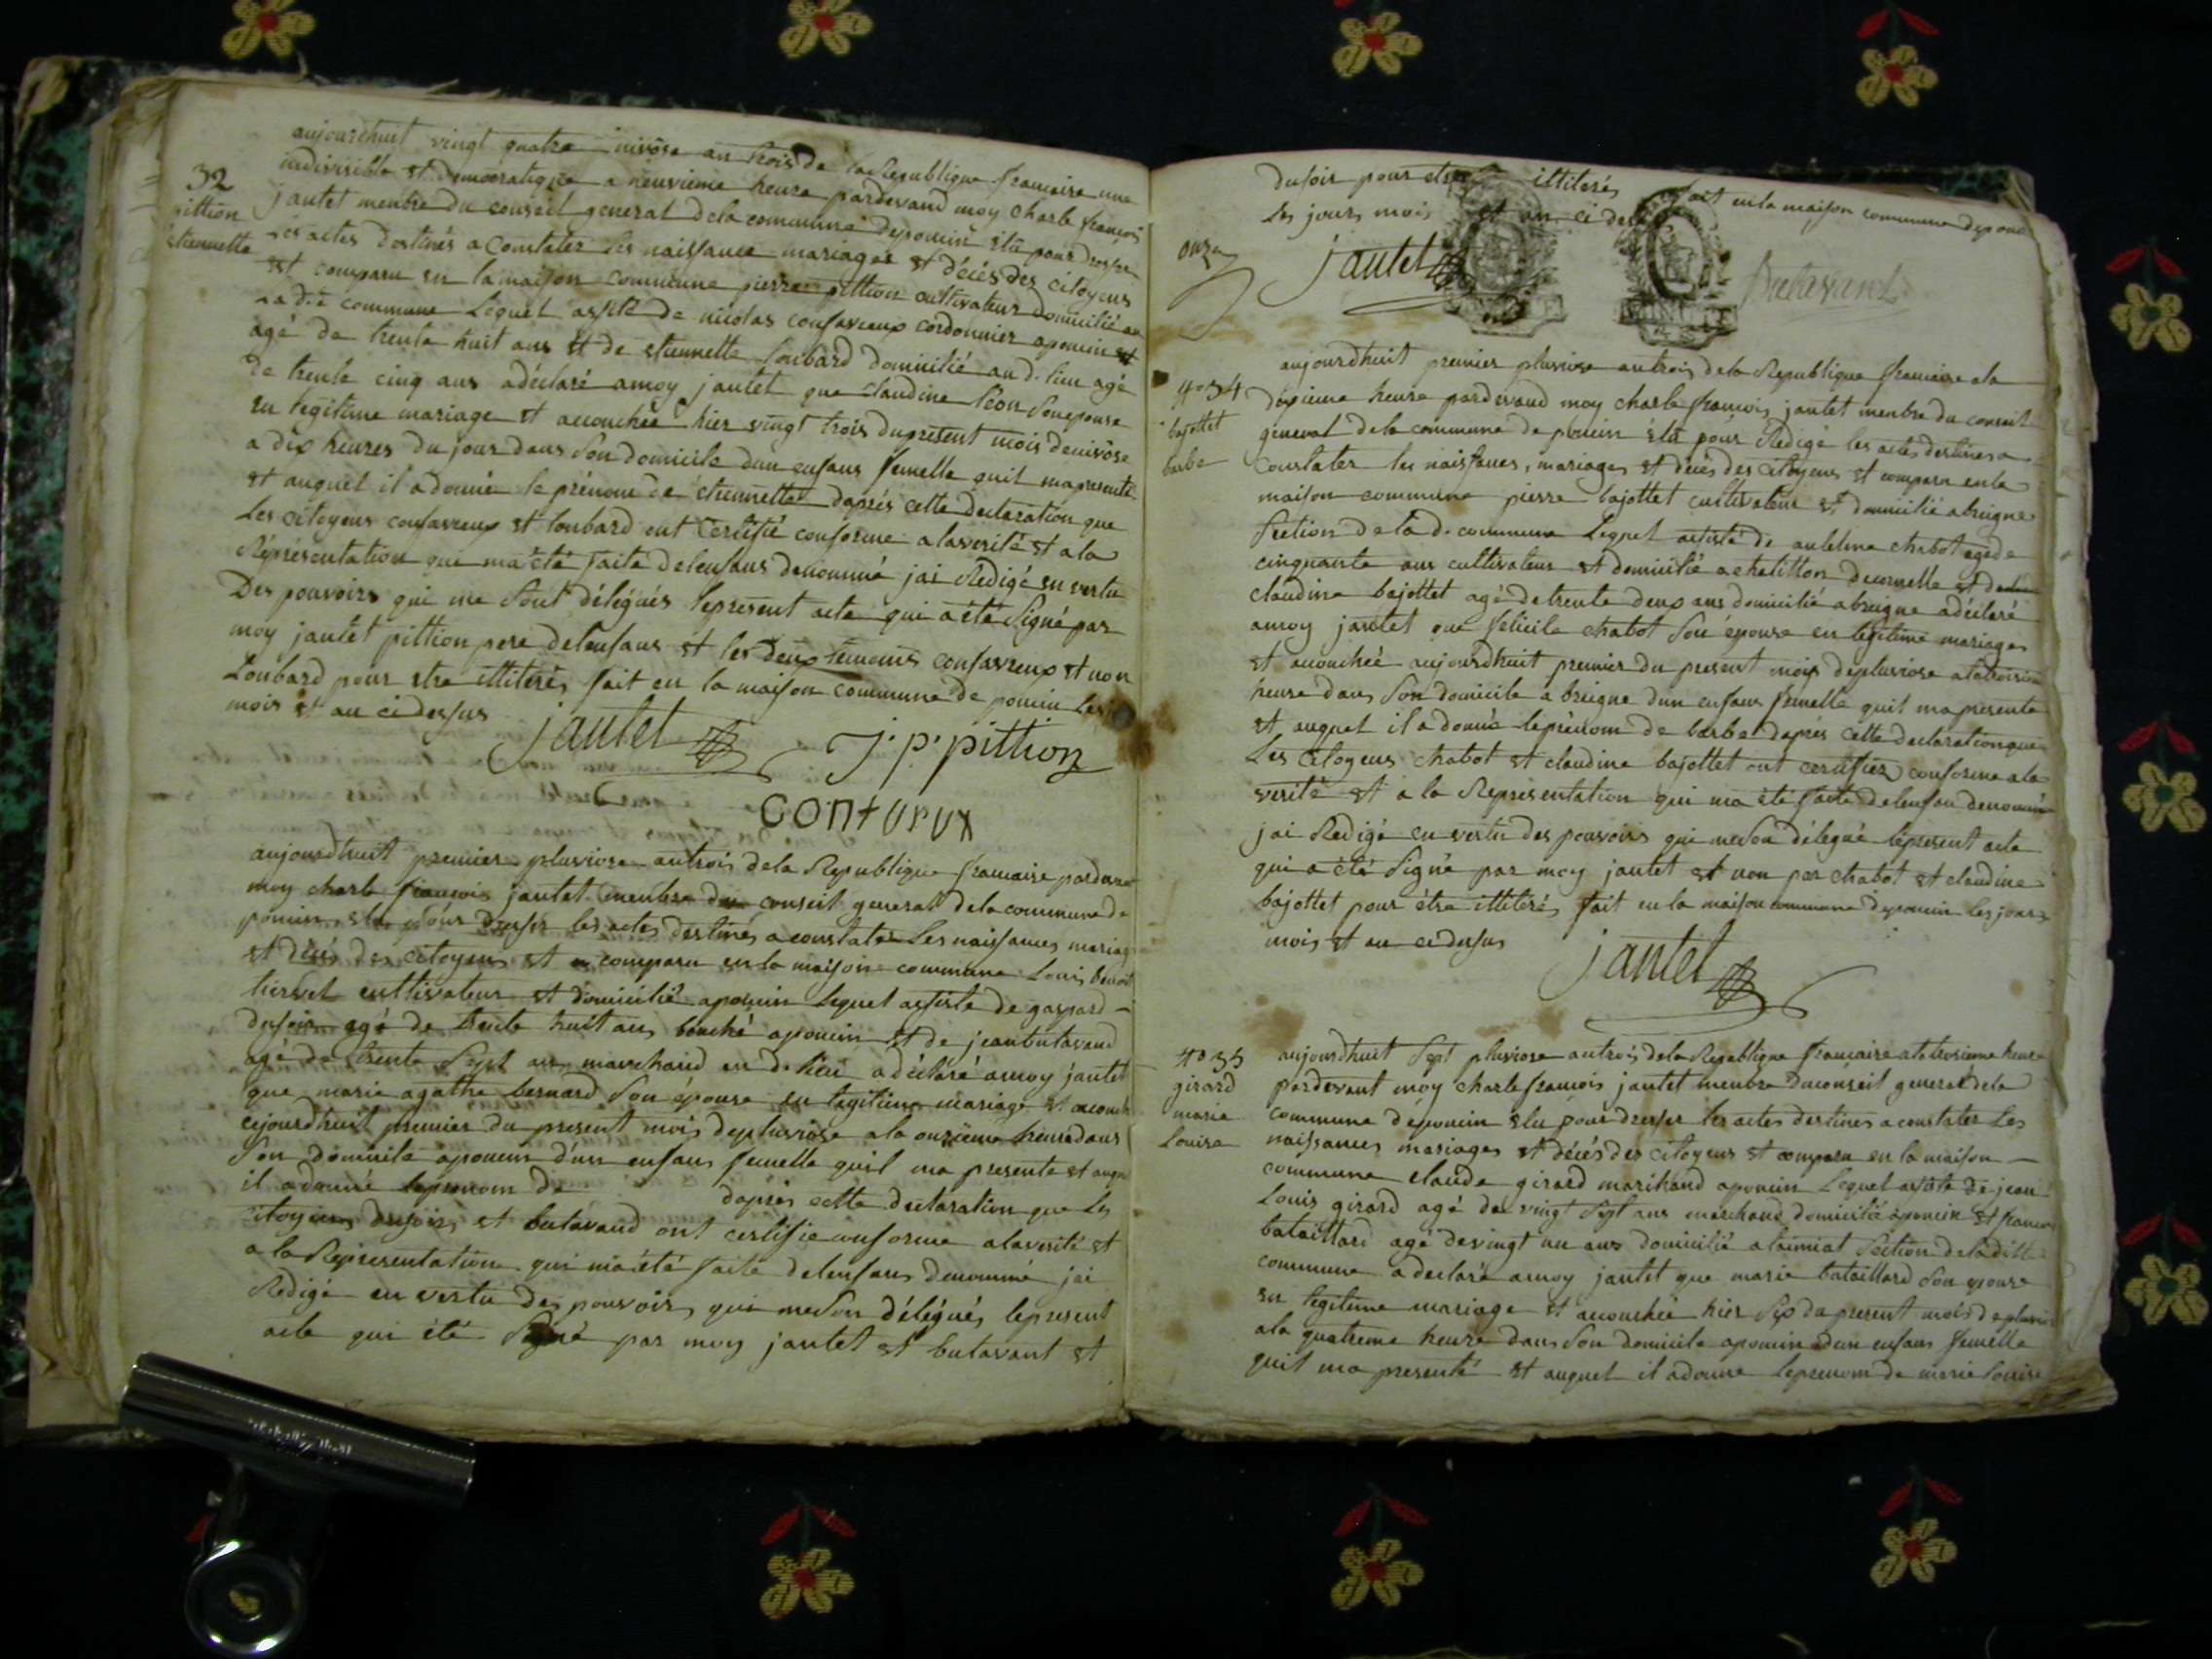 aujourdhuit vingt quatre nivôse an trois de la Republique francaise une
indivisible et democratique a neuvieme heure pardevand moy charle francois
jantet menbre du conseil general dela commune deponcin élu pour dresser
Les actes destinés a Constater les naissance mariages et décés des citoyens
est comparu en la maison commune pierre pittion cultivateur domicilié au
La d.e commune Lequel assisté de nicolas confavreux cordonnier aponcin et
agé de trente huit ans et de etiennette Loubard domicilié au d. lieu agé
de trente cinq ans adéclaré amoy jantet que claudine Léon Son epouse
en legitime mariage et accouchée hier vingt trois du present mois denivôse
a dix heures du jour dans Son domicile dun enfans femelle quil mapresenté
et auquel il a donné le prénom de etiennette daprés cette declaration que
Les citoyens confavreux et loubard ont certifié conforme alaverité et ala
Réprésentation qui ma été faite delenfans denommé jai Redigé en vertu
Des pouvoirs qui me Sont délégués lepresent acte qui a été Signé par
moy jantet pittion pere delenfans et les deux temoins confavreux et non
Loubard pour etre illiterés fait en la maison commune de poncin Les
mois et an ci dessus
jantet J. p. pittion
32
pittion
etiennette
aujourdhuit premier pluviose antrois dela Republique francaise pardevand
moy charle francois jantet menbre du conseil general dela commune de
poncin élu pour dresser les actes destinés a constaté Les naissances mariages
et décés des citoyens et a comparu en la maison commune Louis benoit
cultivateur et domicilié aponcin Lequel assisté de gaspard
dufoir agé de trente huit ans bouché aponcin et de jean butavand
agé de trente Sept ans marchand au d. lieu a déclaré amoy jantet
que marie agathe bernard Son épouse en legitime mariage et accouché
cejourdhuit premier du present mois depluviose ala onzieme heure dans
Son domicile aponcin d'un enfans femelle quil ma presenté et auquel
il a donné leprenom de daprés cette declaration que Les
citoyens dufoir et butavand ont certifie conforme alaverité et
a la Representation qui ma été faite delenfans denommé jai
Redigé en vertu des pouvoirs qui meson délégués lepresent
acte qui été Signé par moy jantet et butavant et
dufoir pour etre illiterés fait en la maison commune deponcin
Les jours mois et an ci dessus
jantet Butavant
onze
aujourdhuit premier pluviose antrois dela Republique francaise ala
dixieme heure pardevand moy charle francois jantet menbre du conseil
general dela commune de poncin élu pour Redigé les actes destinés a
Constater les naissances, mariages et décés des citoyens et comparu en la
maison commune pierre bajottet cultivateur et domicilié abreigne
Section de la d. commune Lequel assisté de antelme chabot agé de
cinquante ans cultivateur et domicilié achatillon decornelle et de
claudine bajottet agé de trente deux ans domicilié abreigne adéclaré
amoy jantet que felicile chabot Son épouse en legitime mariage
et accouchée aujourdhuit premier du present mois depluviose alatroisieme
heure dans Son domicile a breigne dun enfans femelle quil ma presenté
et auquel il a donné leprénom de barbe daprés cette declaration que
Les citoyens chabot et claudine bajottet ont certifiez conforme ala
verité et a la Représentation qui ma été faite delenfan denommé
jai Redigé en vertu des pouvoirs qui meson délégué lepresent acte
qui a été Signé par moy jantet et non par chabot et claudine
bajottet pour étre illiterés fait en la maison commune deponcin les jours
mois et an cidessus
jantet
n° 34
bajottet
barbe
n° 35
girard
marie
Louise
aujourdhuit Sept pluviose antrois dela Republique francaise alatroisieme heure
pardevant moy charle francois jantet menbre duconseil general dela
commune déponcin élu pour dresser les actes destinés a constater Les
naissances mariages et décés des citoyens et comparu en la maison
commune claude girard marchand aponcin Lequel assisté de jean
Louis girard agé de vingt Sept ans marchand domicilié aponcin et francois
bataillard agé devingt un ans domicilié alaimiat Section deladitte
commune a declaré amoy jantet que marie bataillard Son epouse
en legitime mariage et accouchée hier Six du present mois de pluviose
ala quatrieme heure dans Son domicile aponcin dun enfans femelle
quil ma presenté et auquel il adonne leprenom de marie louise